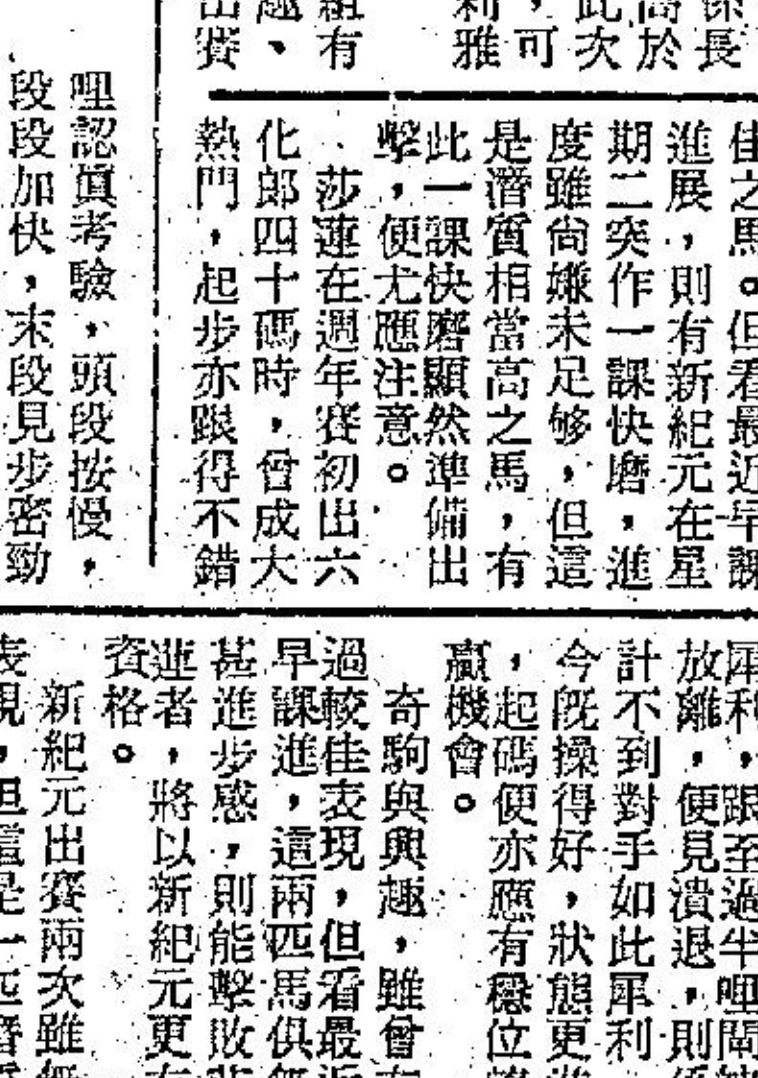 係長
高於
此次
，可
利雅
組有
趣、
出賽
佳之馬。但看最近早課
進展，則有新紀元在星
期二突作一課快磨，進
度雖尙嫌未足够，但這
是潛質相當高之馬，有
此一課快磨顯然準備出
擊，便尤應注意。
莎蓮在週年賽初出六
化郎四十碼時，曾成大
熱門，起步亦跟得不錯
哩認眞考驗，頭段按慢，
段段加快，末段見步密勁
犀利，跟至過半哩閘
放離，便見潰退，則
計不到對手如此犀利
今旣操得好，狀態更
，起碼便亦應有穩位
贏機會。
奇駒與興趣，雖曾
過較佳表現，但看最近
早課進，這兩匹馬俱無
甚進步感，則能擊敗
蓮者，將以新紀元更有
資格。
新紀元出賽兩次雖無
表現，但這是一匹潛